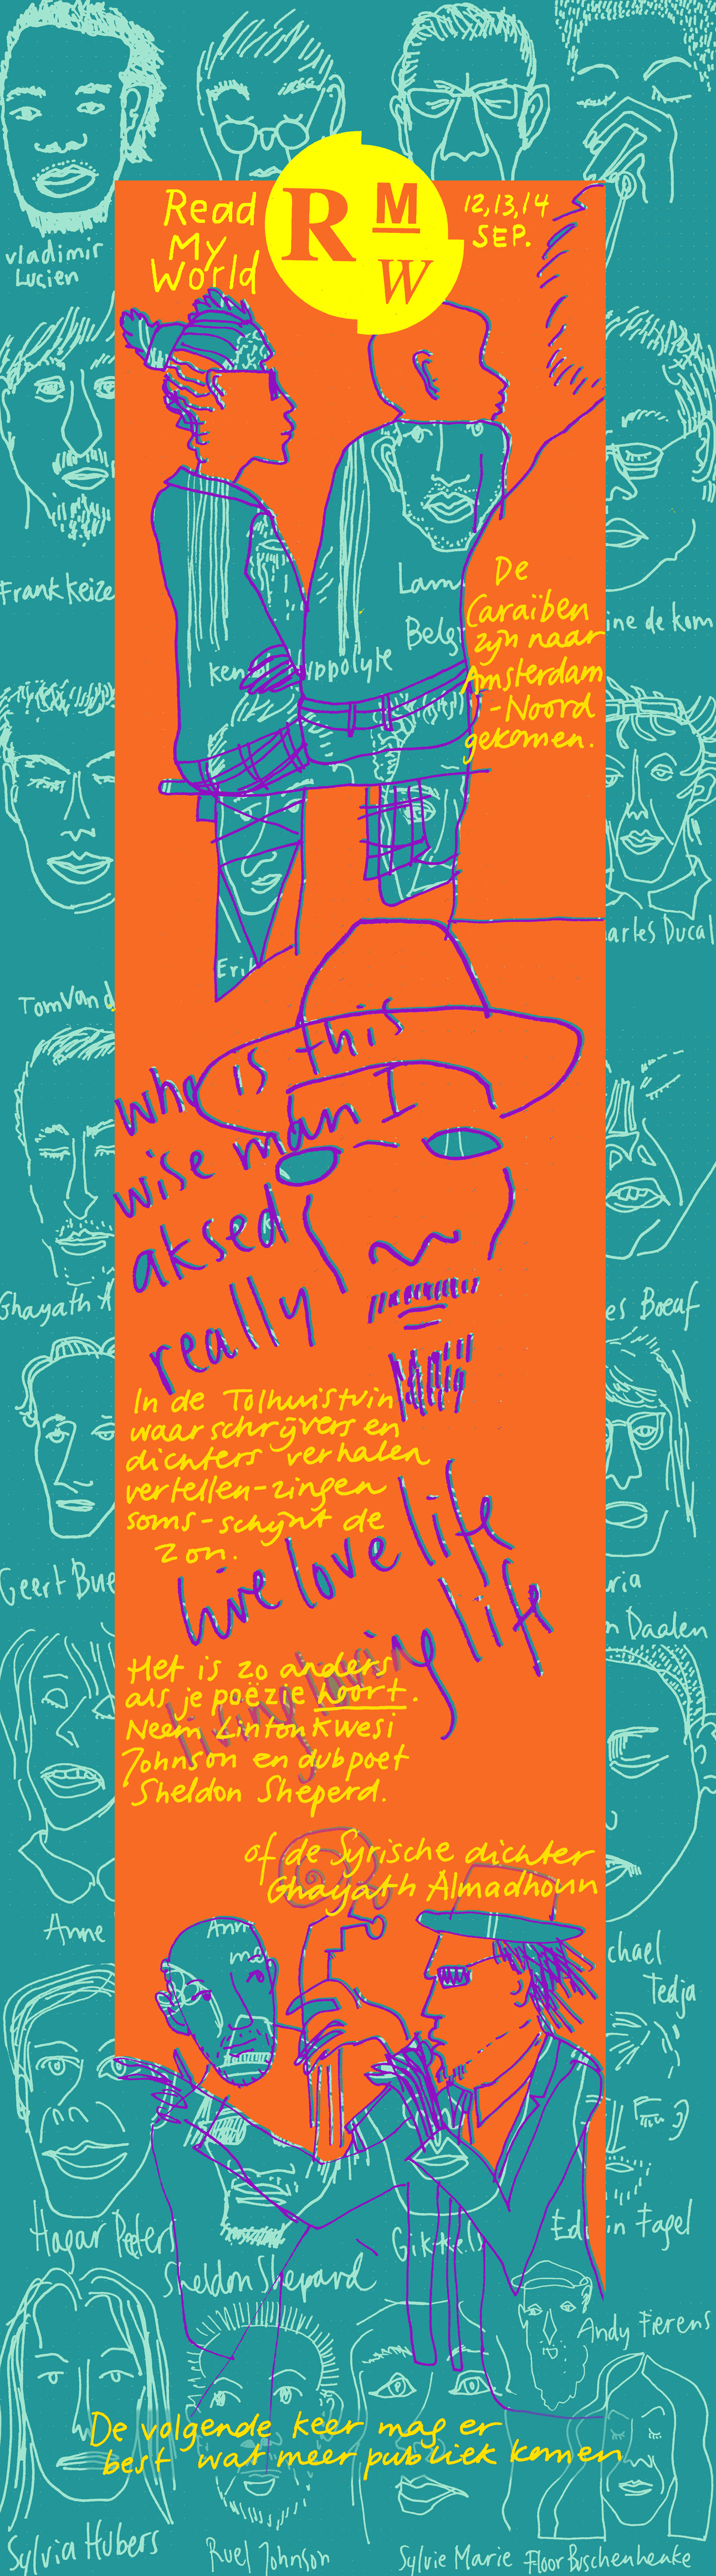 vladimir
Lucien
Read
My
World
R M
W
12, 13, 14
SEP.
Frank Keize
Lam
Belg
De
Caraïben
zijn naar
Amsterdam
-Noord
gekomen.
ine de kom
yppolyte
arles Ducal
Eri
Tom Van d
who is this
wise man I
aksed
really
Ghayath A
es Boeuf
In de Tolhuistuin
waar schrijvers en
dichters verhalen
vertellen-zingen
soms-schijnt de
zon.
live love life
living loving life
Geert Bue
ria
n Daalen
Het is zo anders
als je poëzie hoort.
Neem Linton Kwesi
Johnson en dubpoet
Sheldon Sheperd.
of de Syrische dichter
Ghayath Almadhoun
Anne
Ann
chael
Tedja
Hagar Peters
Sheldon Shepard
Ed in Fagel
Andy Fierens
De volgende keer mag er
best wat meer publiek komen
Sylvia Hubers
Ruel Johnson
Sylvie Marie
Floor Buschenhenke